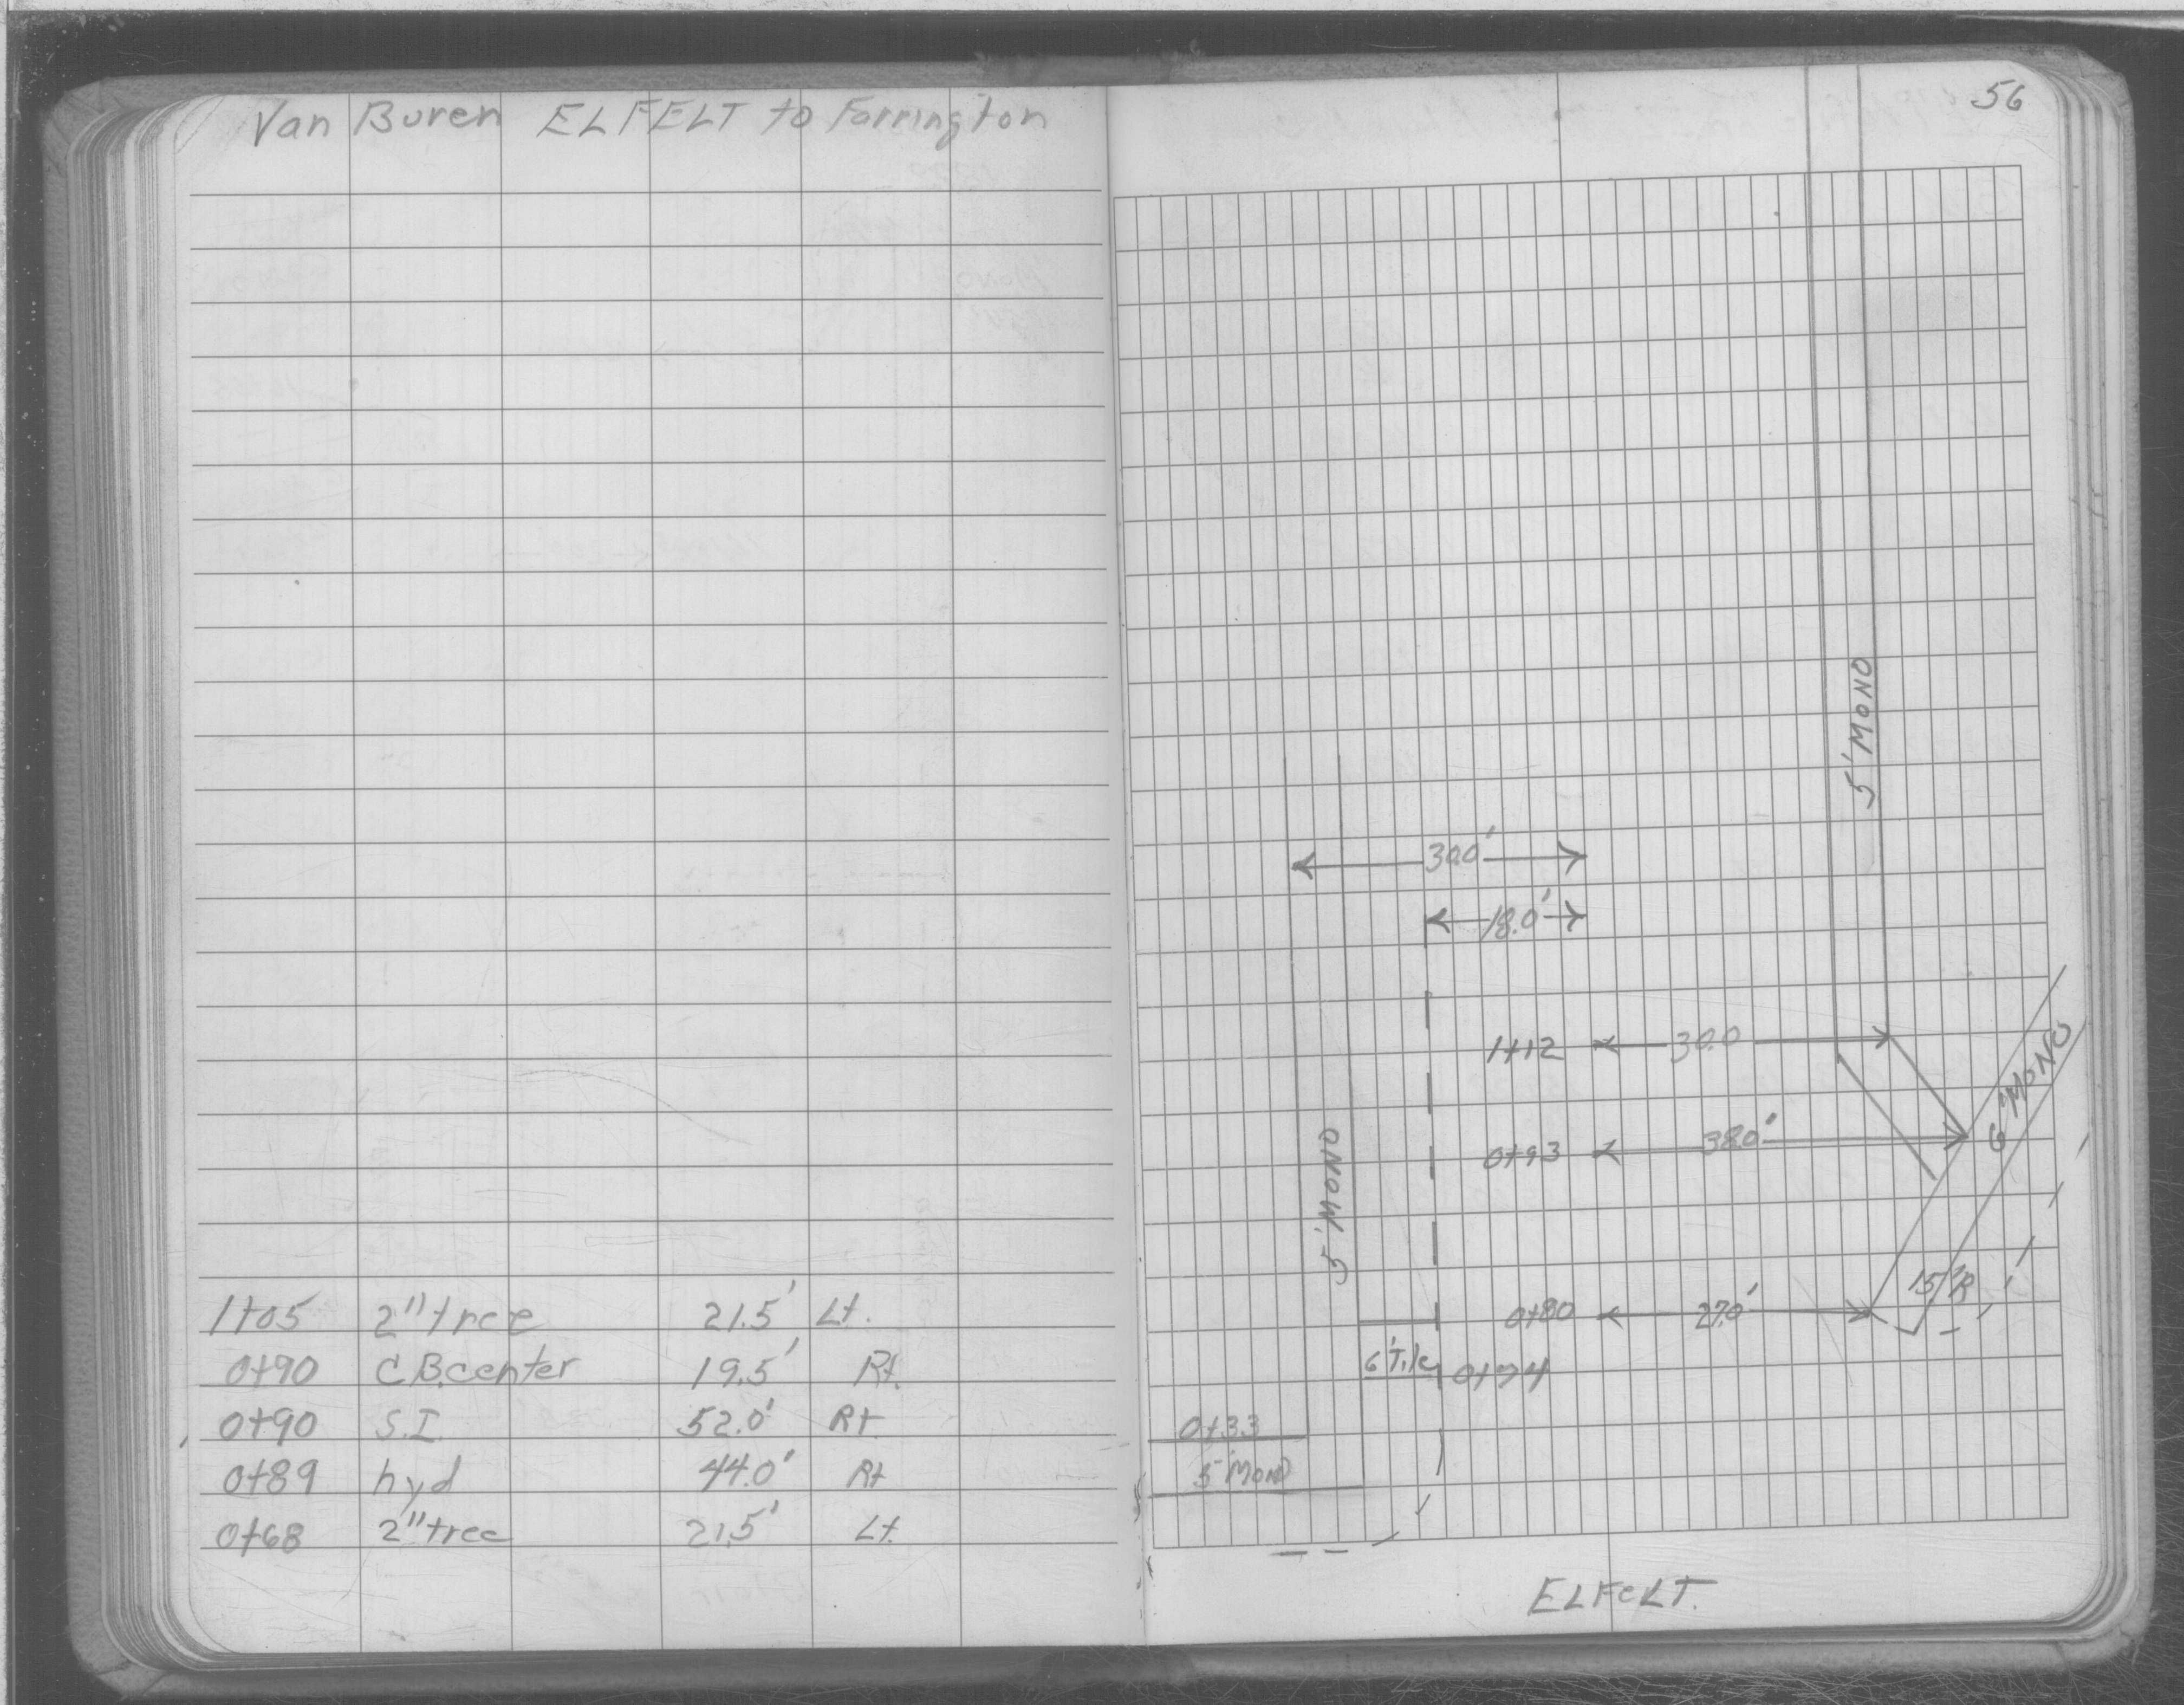 Van Buren ELFELT to Farrington
1+05 2" tree 21.5' Lt.
0+90 C.B. center 19.5' Rt.
0+90 S.I. 52.0' Rt
0+89 hyd 44.0' Rt
0+68 2" tree 21.5' Lt.
56
5' MONO
30.0'
18.0'
1+12 30.0
6' MONO
0+93 38.0'
5' MONO
15'R
0+80 27.0'
6' Tile 0+74
0+33
5' MONO
ELFeLT.